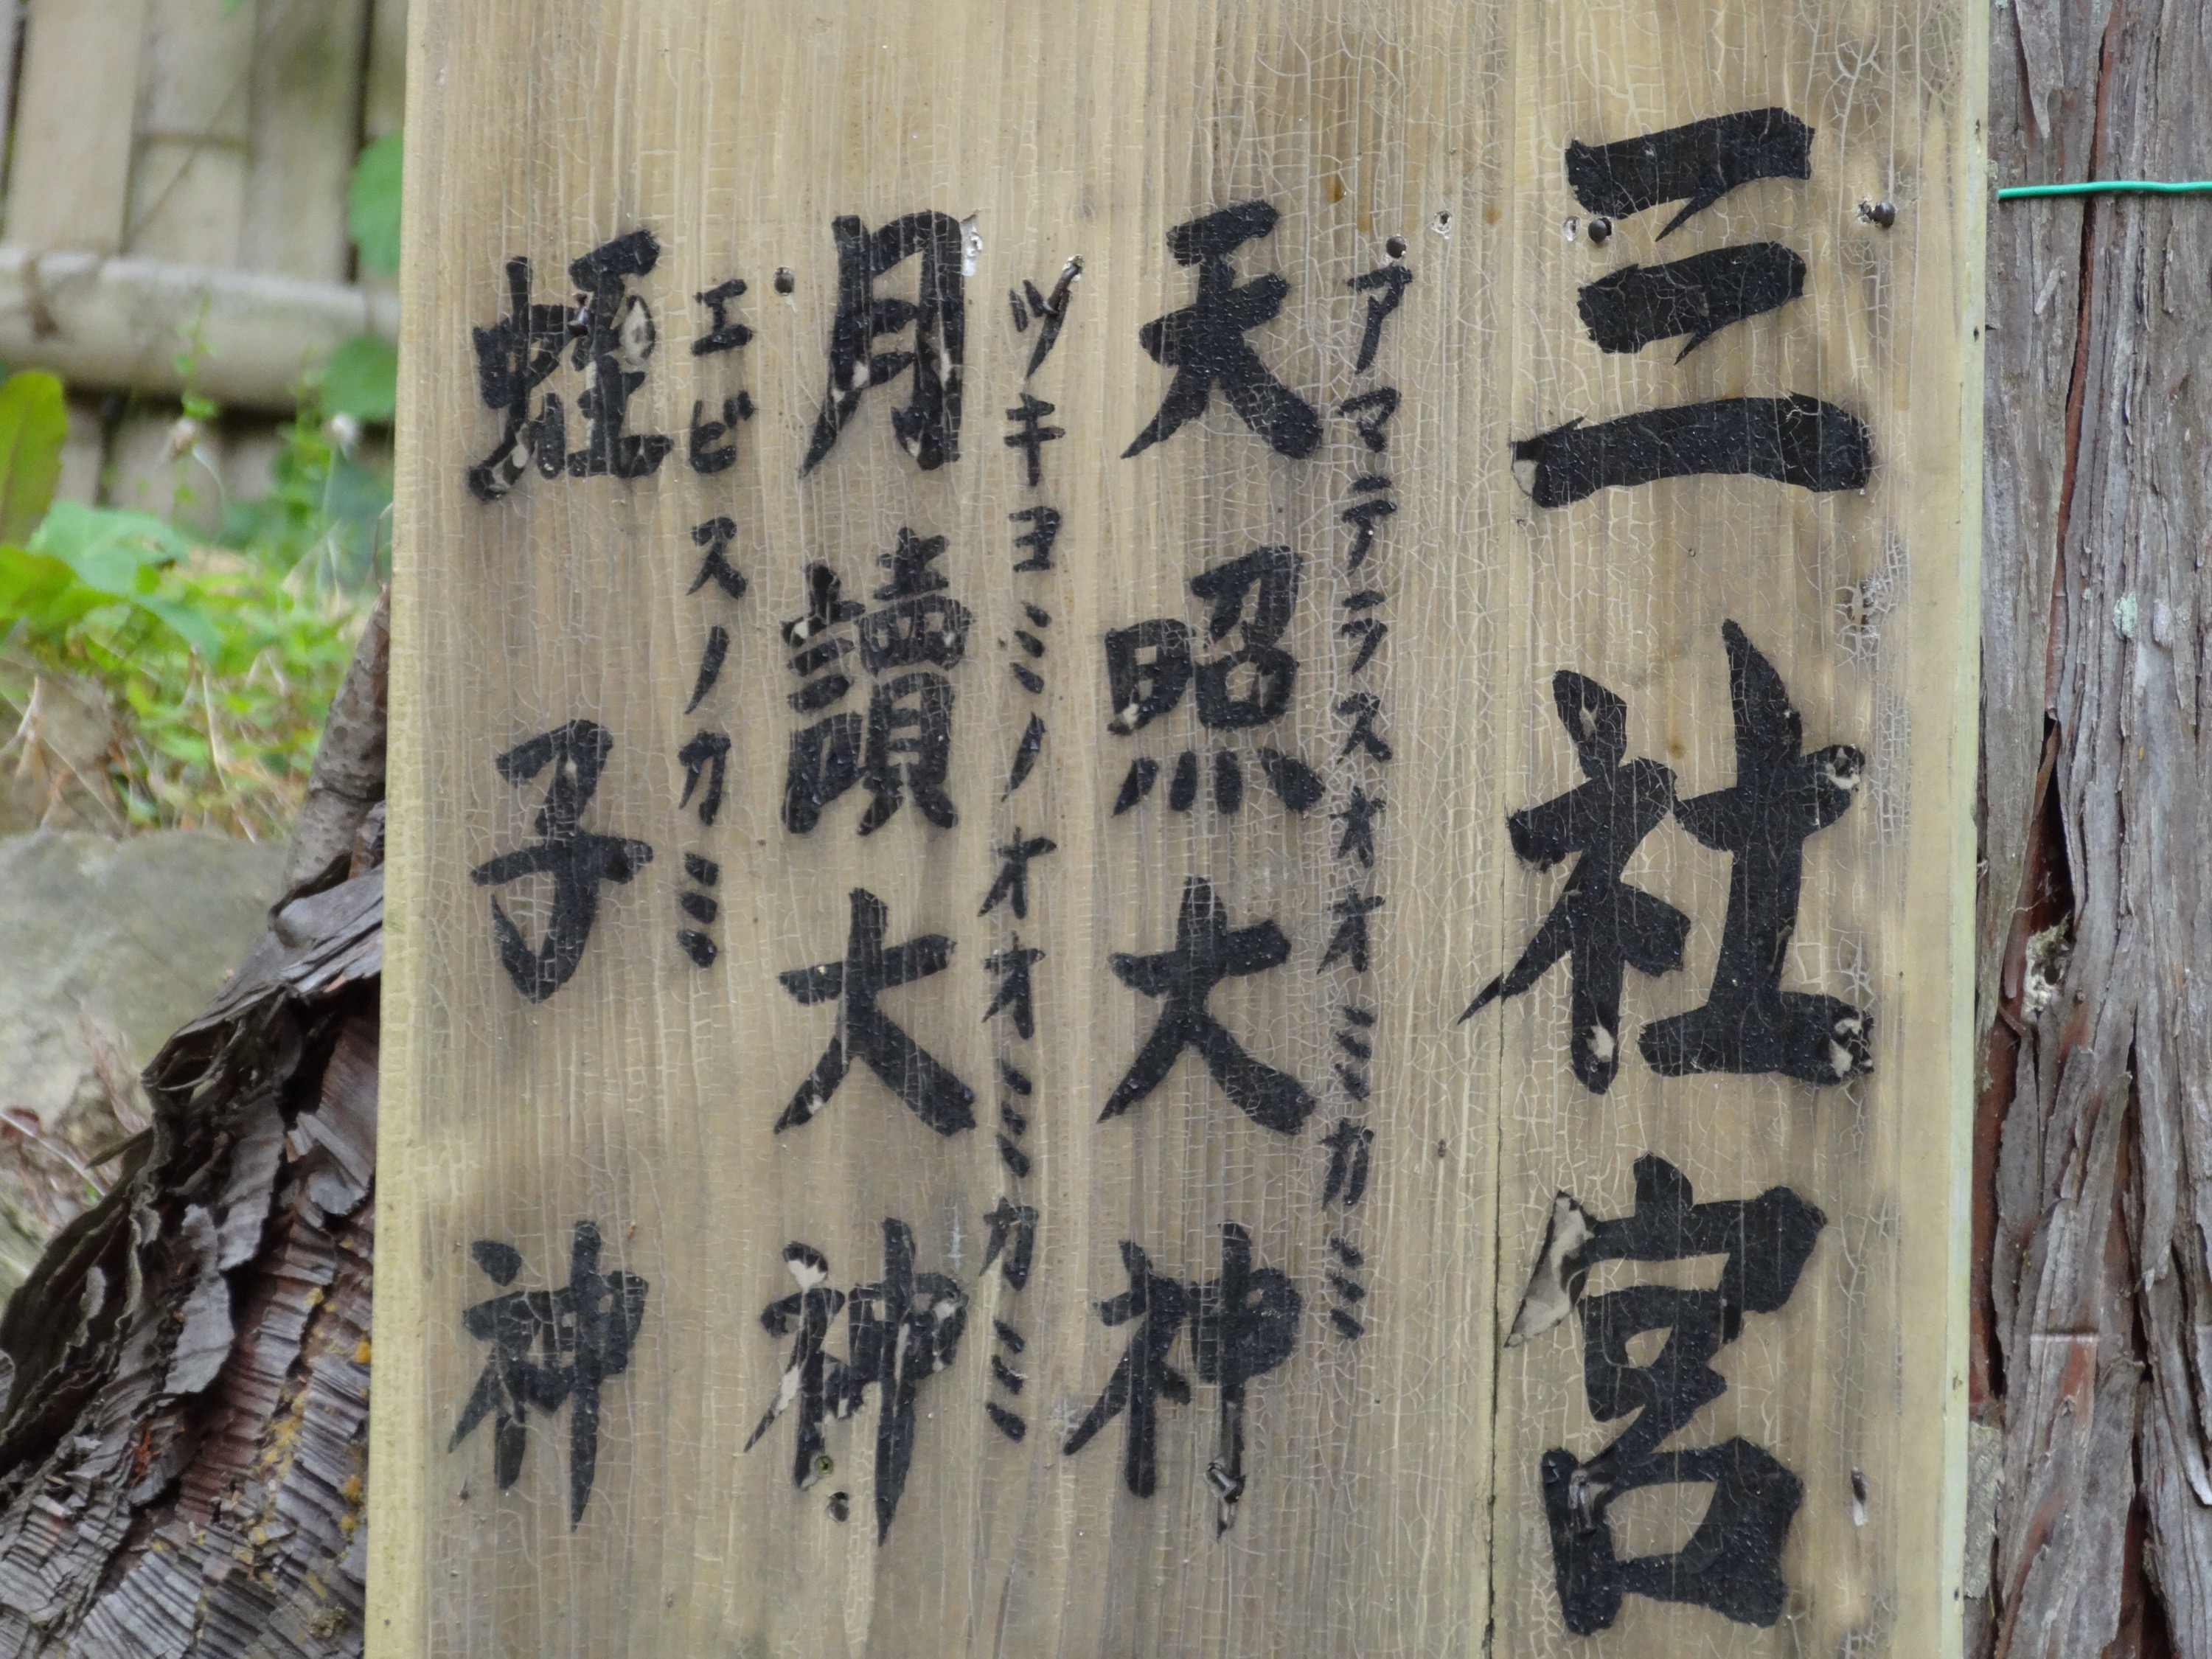 三社宮
アマテラスオオミカミ
天照大神
ツキヨミノオオミカミ
月讀大神
エビスノカミ
蛭子神